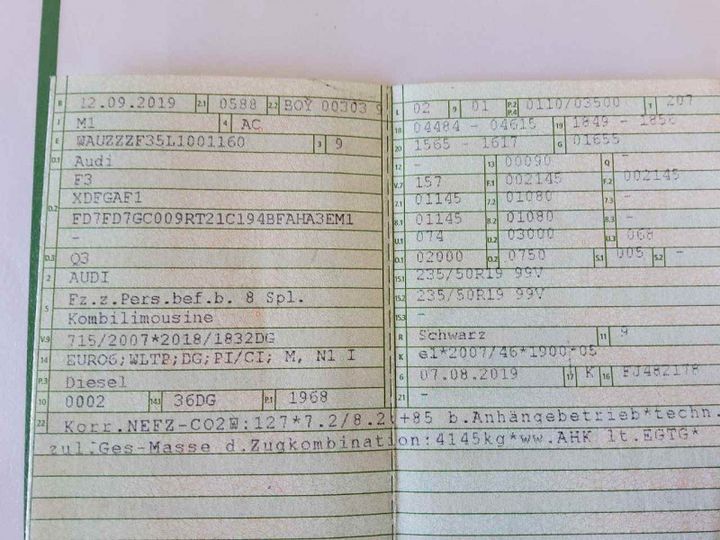 B 12.09.2019 2.1 0588 2.2 BOY 00303 9
J M1 4 AC
E WAUZZZF35L1001160 3 9
D.1 Audi
F3
D.2 XDFGAF1
FD7FD7GC009RT21C194BFAHA3EM1
-
D.3 Q3
2 AUDI
5 Fz.z.Pers.bef.b. 8 Spl.
Kombilimousine
V.9 715/2007*2018/1832DG
14 EURO6;WLTP;DG;PI/CI; M, N1 I
P.3 Diesel
10 0002 14.1 36DG P.1 1968
L 02 9 01 P.2 P.4 0110/03500 T 207
18 04484 - 04615 19 1849 - 1856
20 1565 - 1617 G 01655
12 - 13 00090 Q -
V.7 157 F.1 002145 F.2 002145
7.1 01145 7.2 01080 7.3 -
8.1 01145 8.2 01080 8.3 -
U.1 074 U.2 03000 U.3 068
O.1 02000 O.2 0750 S.1 005 S.2 -
15.1 235/50R19 99V
15.2 235/50R19 99V
15.3 -
R Schwarz 11 9
K e1*2007/46*1900*05
6 07.08.2019 17 K 16 FJ482178
21 -
22 Korr.NEFZ-CO2W:127*7.2/8.2:+85 b.Anhängebetrieb*techn.
zul.Ges-Masse d.Zugkombination:4145kg*ww.AHK lt.EGTG*